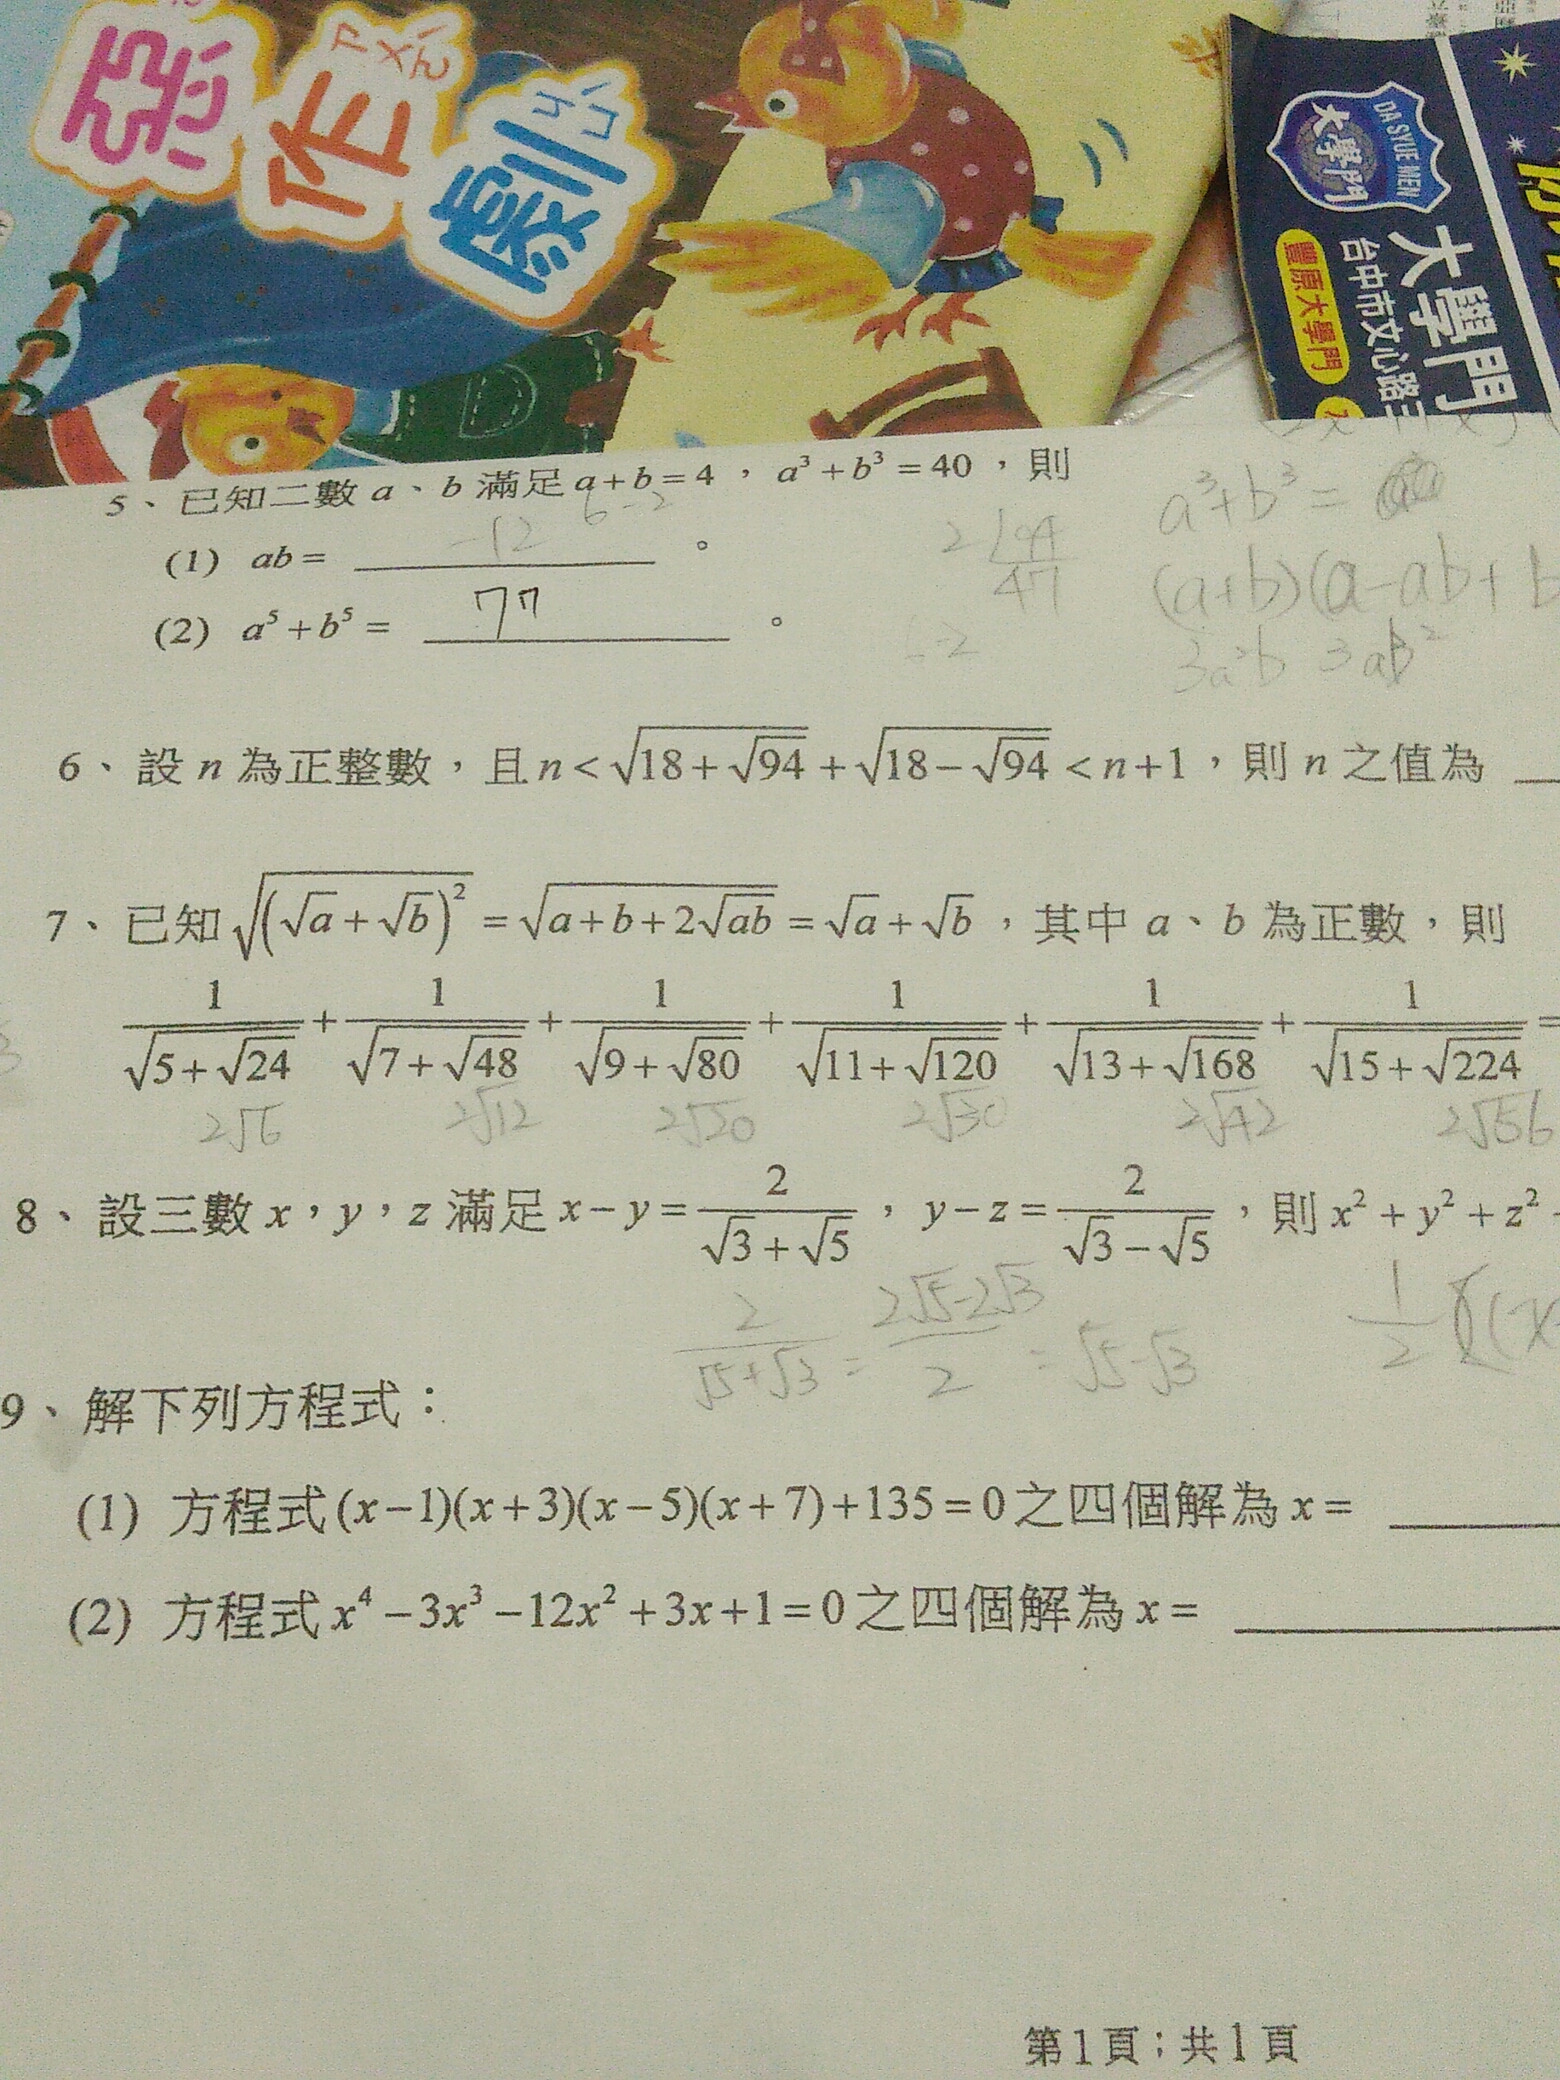 惡作劇
ㄗㄨㄛˋ
ㄐㄩˋ
D
DA SYUE MEN
大學門
大學門
台中市文心路三
豐原大學門
5、已知二數 a、b 滿足 a+b=4，a³+b³=40，則
(1) ab= -12 。
(2) a⁵+b⁵= 77 。
a³+b³=
(a+b)(a-ab+b
3a²b 3ab²
94
47
-2
6、設 n 為正整數，且 n<√(18+√94)+√(18-√94)<n+1，則 n 之值為
7、已知 √((√a+√b)²)=√(a+b+2√ab)=√a+√b，其中 a、b 為正數，則
1/√(5+√24)+1/√(7+√48)+1/√(9+√80)+1/√(11+√120)+1/√(13+√168)+1/√(15+√224)=
2√6 2√12 2√20 2√30 2√42 2√56
8、設三數 x，y，z 滿足 x-y=2/(√3+√5)，y-z=2/(√3-√5)，則 x²+y²+z²-
2/(√5+√3)=(2√5-2√3)/2=√5-√3
1/2
9、解下列方程式：
(1) 方程式(x-1)(x+3)(x-5)(x+7)+135=0之四個解為 x=
(2) 方程式 x⁴-3x³-12x²+3x+1=0之四個解為 x=
第1頁；共1頁